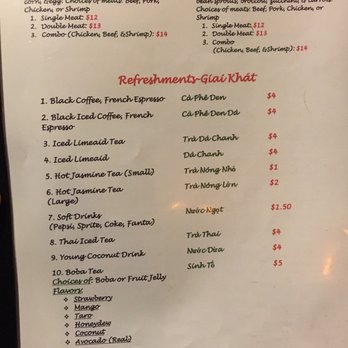 corn, & egg. Choices of meats: Beef, Pork,
Chicken, or Shrimp
1. Single Meat: $12
2. Double Meat: $13
3. Combo (Chicken, Beef, &Shrimp): $14
bean sprouts, broccoli, zucchini, & carrots.
Choices of meats: Beef, Pork, Chicken, or
Shrimp
1. Single Meat: $12
2. Double Meat: $13
3. Combo
(Chicken, Beef, &Shrimp): $14
Refreshments-Giai Khát
1. Black Coffee, French Espresso Cà Phê Den $4
2. Black Iced Coffee, French Cà Phê Den Dá $4
Espresso
3. Iced Limeaid Tea Trà Dá Chanh $4
4. Iced Limeaid Dá Chanh $4
5. Hot Jasmine Tea (Small) Trà Nóng Nhỏ $1
6. Hot Jasmine Tea Trà Nóng Lớn $2
(Large)
7. Soft Drinks Nước Ngọt $1.50
(Pepsi, Sprite, Coke, Fanta)
8. Thai Iced Tea Trà Thai $4
9. Young Coconut Drink Nước Dừa $4
10. Boba Tea Sinh Tố $5
Choices of: Boba or Fruit Jelly
Flavors:
❖ Strawberry
❖ Mango
❖ Taro
❖ Honeydew
❖ Coconut
❖ Avocado (Real)